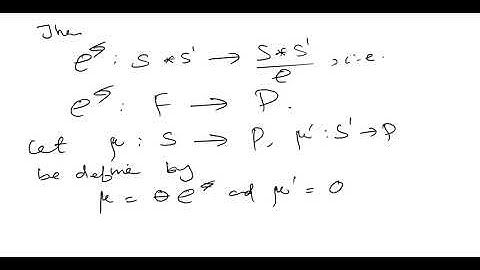 Then
e♮ : S * S' → S * S' / e , i.e.
e♮ : F → P.
Let μ : S → P, μ' : S' → P
be define by
μ = θ e♮ and μ' = θ